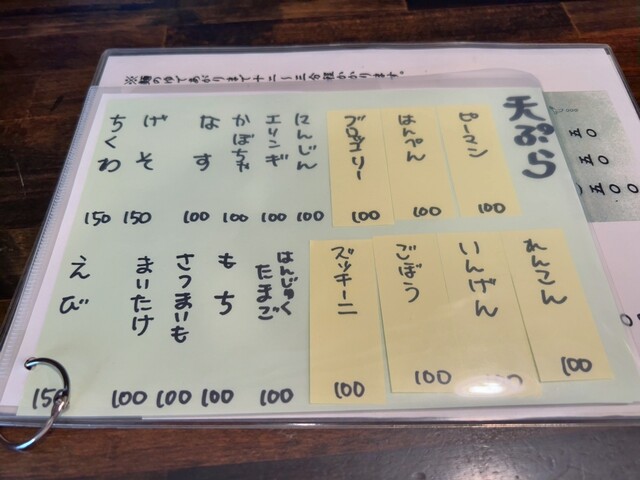 ※麺のゆであがりまで十二〜三分程かかります。
天ぷら
ピーマン 100
はんぺん 100
ブロッコリー 100
にんじん 100
エリンギ 100
かぼちゃ 100
なす 100
げそ 150
ちくわ 150
れんこん 100
いんげん
ごぼう 100
ズッキーニ 100
はんじゅくたまご 100
もち 100
さつまいも 100
まいたけ 100
えび 150
五〇
五〇
五〇